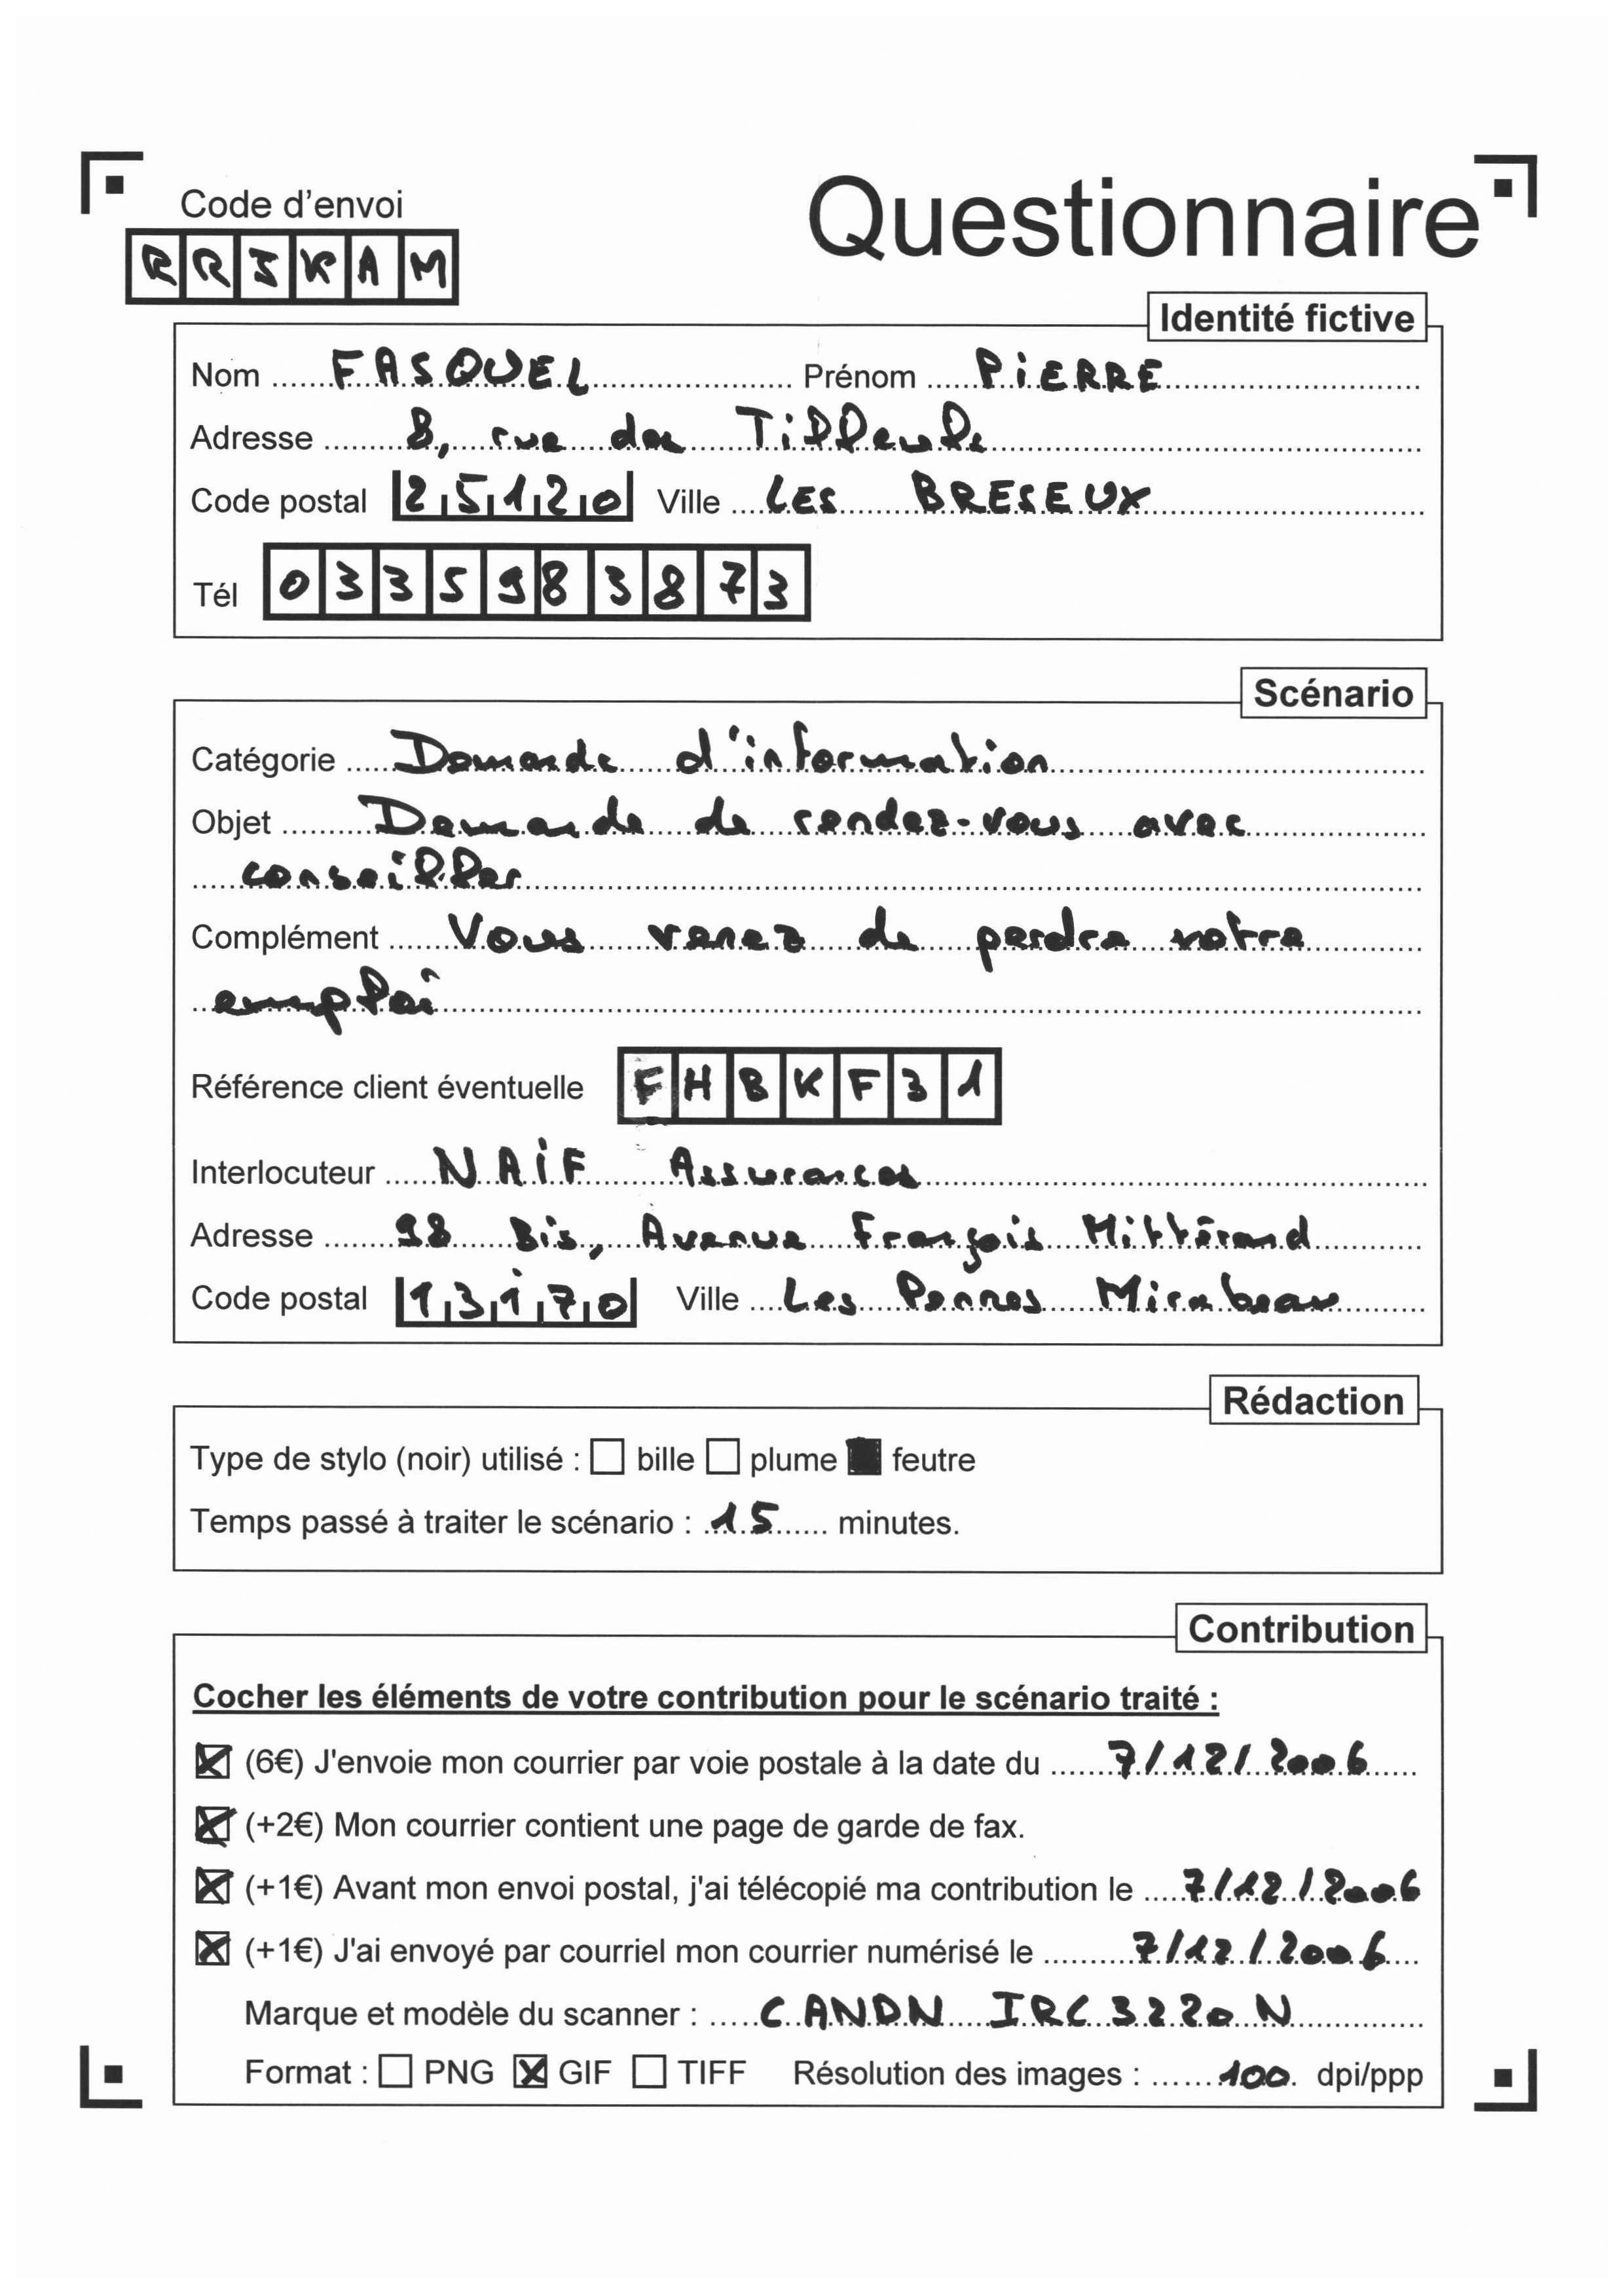 Code d'envoi
Questionnaire
RRIKAM
Identité fictive
Nom FASQUEL Prénom PiERRE
Adresse 8, rue des Tilleuls
Code postal 25120 Ville LES BRESEUX
Tél 0335983873
Scénario
Catégorie Demande d'information
Objet Demande de rendez-vous avec
conseiller
Complément Vous venez de perdre votre
emploi
Référence client éventuelle FHBKF31
Interlocuteur NAiF Assurances
Adresse 98 Bis, Avenue François Mittérand
Code postal 13170 Ville Les Pennes Mirabeau
Rédaction
Type de stylo (noir) utilisé : bille plume feutre
Temps passé à traiter le scénario : 15 minutes.
Contribution
Cocher les éléments de votre contribution pour le scénario traité :
(6€) J'envoie mon courrier par voie postale à la date du 7/12/2006
(+2€) Mon courrier contient une page de garde de fax.
(+1€) Avant mon envoi postal, j'ai télécopié ma contribution le 7/12/2006
(+1€) J'ai envoyé par courriel mon courrier numérisé le 7/12/2006
Marque et modèle du scanner : CANON IRC 3220 N
Format : PNG GIF TIFF Résolution des images : 100 dpi/ppp